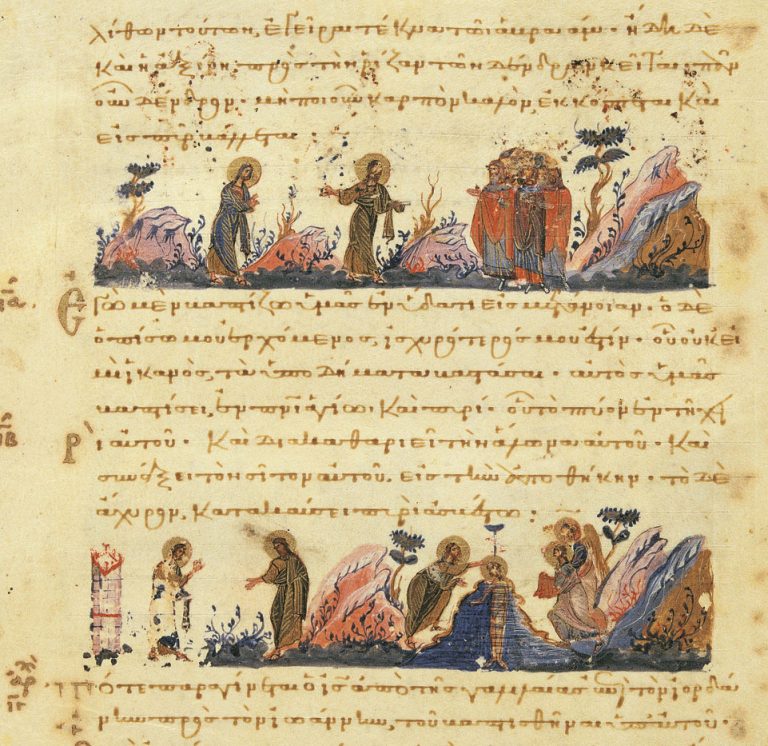 λίθων τούτων, ἐγεῖραι τέκνα τῶι ἀβραάμ· ἤδη δὲ
καὶ ἡ ἀξίνη, πρὸς τὴν ῥίζαν τῶν δένδρων κεῖται· πᾶν
οὖν δένδρον· μὴ ποιοῦν καρπὸν καλὸν, ἐκκόπτεται καὶ
εἰς πῦρ βάλλεται:
ια
Ἐγὼ μὲν βαπτίζω ὑμᾶς ἐν ὕδατι εἰς μετάνοιαν· ὁ δὲ
ὀπίσω μου ἐρχόμενος, ἰσχυρότερός μου ἐστίν· οὗ οὐκ εἰ
μὶ ἱκανὸς, τὰ ὑποδήματα βαστάσαι· αὐτὸς ὑμᾶς
βαπτίσει, ἐν πνι ἁγίω· καὶ πυρί· οὗ τὸ πτύον ἐν τῆ χει
ιβ
ρὶ αὐτοῦ· καὶ διακαθαριεῖ τὴν ἅλωνα αὐτοῦ· καὶ
συνάξει τὸν σῖτον αὐτοῦ, εἰς τὴν ἀποθήκην· τὸ δὲ
ἄχυρον, κατακαύσει πυρὶ ἀσβέστω:
Τότε παραγίνεται ὁ ις ἀπὸ τῆς γαλιλαίας ἐπὶ τὸν ἰορδά
νην πρὸς τὸν ἰωάννην, τοῦ βαπτισθῆναι ὑπ' αὐτοῦ·